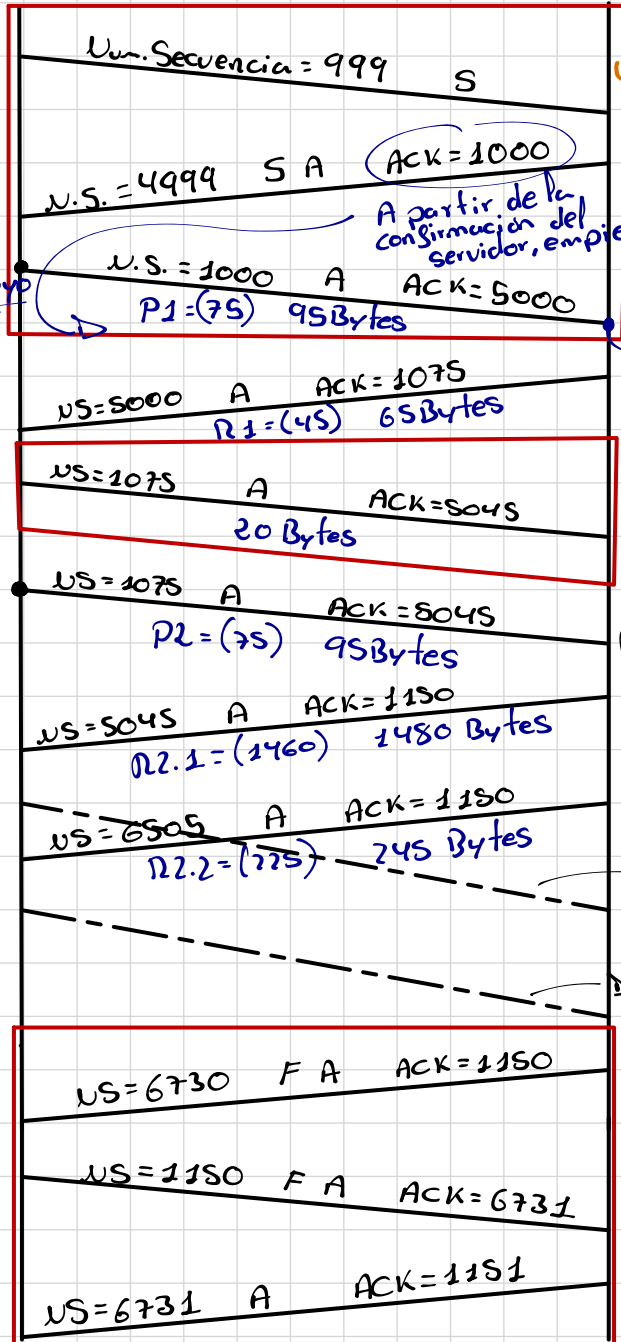 Num.Secuencia = 999 S
N.S. = 4999 S A ACK = 1000
A partir de la
confirmación del
servidor, empie
N.S. = 1000 A ACK = 5000
P1 = (75) 95Bytes
NS=5000 A ACK = 1075
R1 = (45) 65Bytes
NS=1075 A ACK=5045
20 Bytes
NS=1075 A ACK = 5045
P2 = (75) 95Bytes
NS=5045 A ACK = 1150
R2.1 = (1460) 1480 Bytes
NS = 6505 A ACK = 1150
R2.2 = (225) 245 Bytes
NS=6730 F A ACK=1150
NS=1150 F A ACK = 6731
NS=6731 A ACK=1151